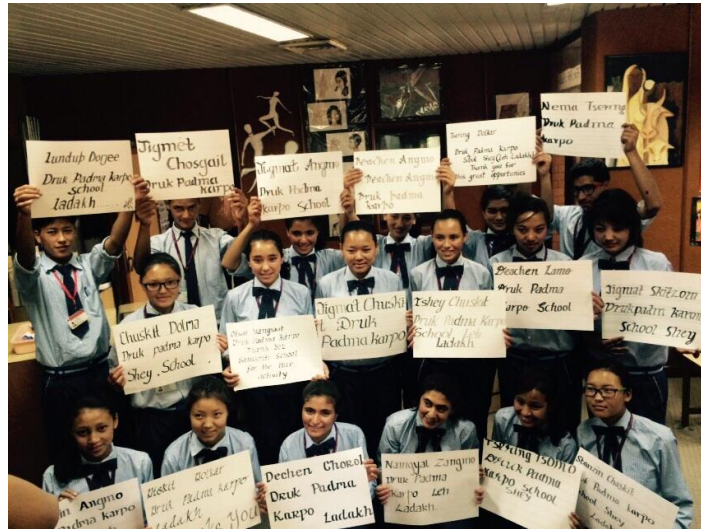 Lundup Dogee
Druk Padma Karpo
School
Ladakh
Jigmet
Chosgail
Druk Padma
Karpo
Jigmat Angmo
Druk Padma
Karpo School
Deachen Angmo
Deachen Angmo
Druk padma
karpo
Tsering Dolkar
Druk Padma karpo
Thank you for
this great
Nema Tsering
Druk Padma
karpo
Chuskit Dolma
Druk padma karpo
Shey School
Druk Padma Karpo
School
for the nice
activity
Jigmat Chuskit
Druk
Padma Karpo
Tshey Chuskit
Druk Padma Karpo
School Leh
Ladakh
Deachen Lamo
Druk Padma
Karpo School
Jigmat
School Shey
Angmo
Padma karpo
Druk Padma Karpo
Ladakh
You
Dechen Chorol
Druk Padma
Karpo Ladakh
Namgyal Zangmo
Druk Padma
Karpo Leh
Ladakh
Tsering
Padma
Karpo School
Shey
Chuskit
Padma Karpo